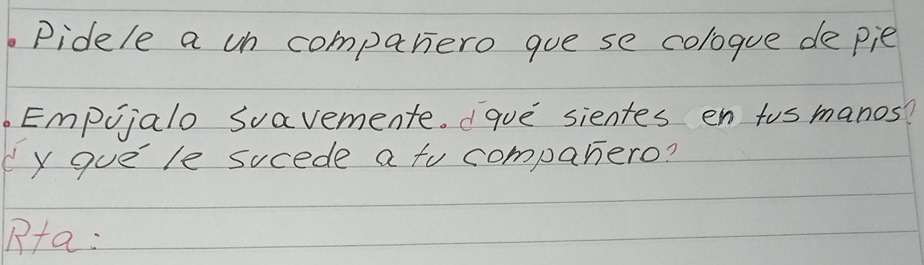 . Pidele a un compañero que se coloque de pie
. Empújalo suavemente. ¿qué sientes en tus manos?
¿y qué le sucede a tu compañero?
Rta: